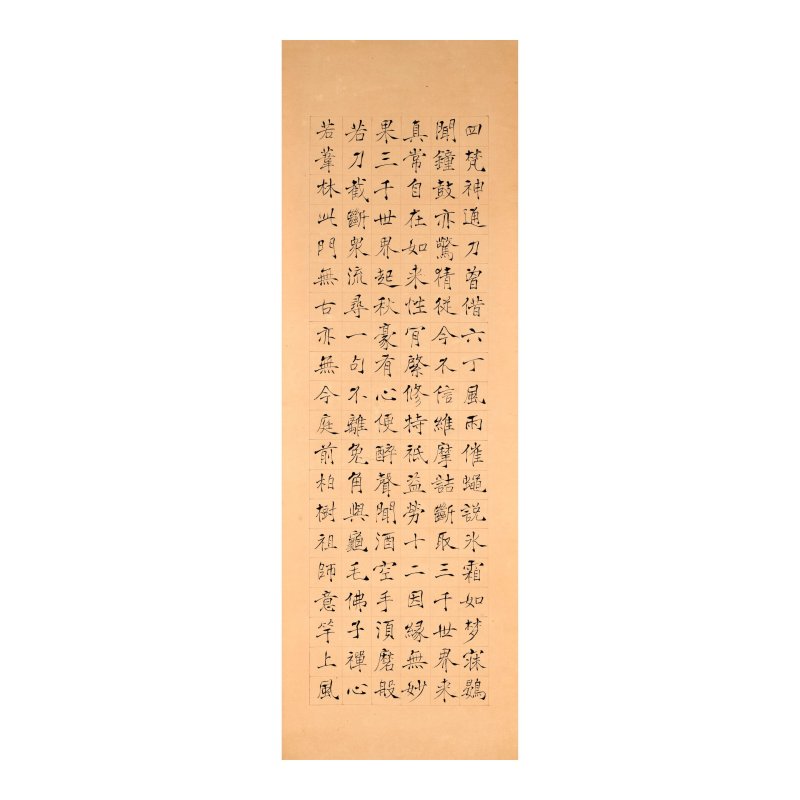 四梵神通刀曾偕六丁風雨催蠅說氷霜如梦寐鷃
聞鐘鼓亦驚猜從今不信維摩詰斷取三千世界来
真常自在如来性肎綮修持祇益勞十二因縁無妙
果三千世界起秋豪有心便醉聲聞酒空手須磨般
若刀截斷衆流尋一句不離兔角與龜毛佛子禪心
若葦林此門無古亦無今庭前柏樹祖師意竿上風